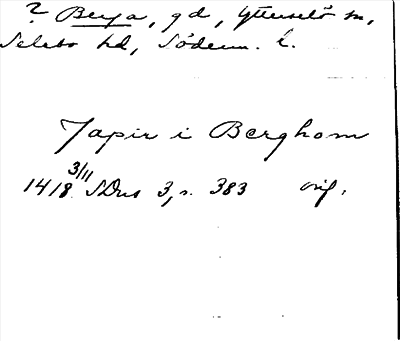 ? Berga, gd, Ytterselö sn,
Selebo hd, Söderm. l.
Japir i Berghom
1418 3/11 SDns 3, s. 383 orig.